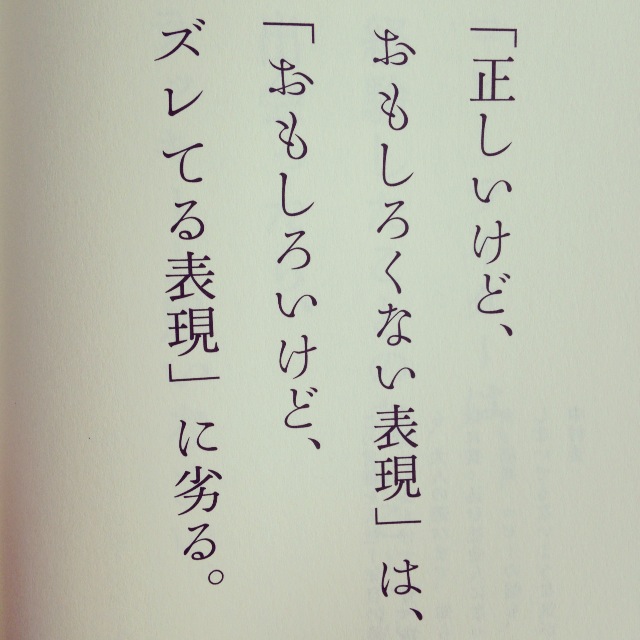 「正しいけど、
おもしろくない表現」は、
「おもしろいけど、
ズレてる表現」に劣る。